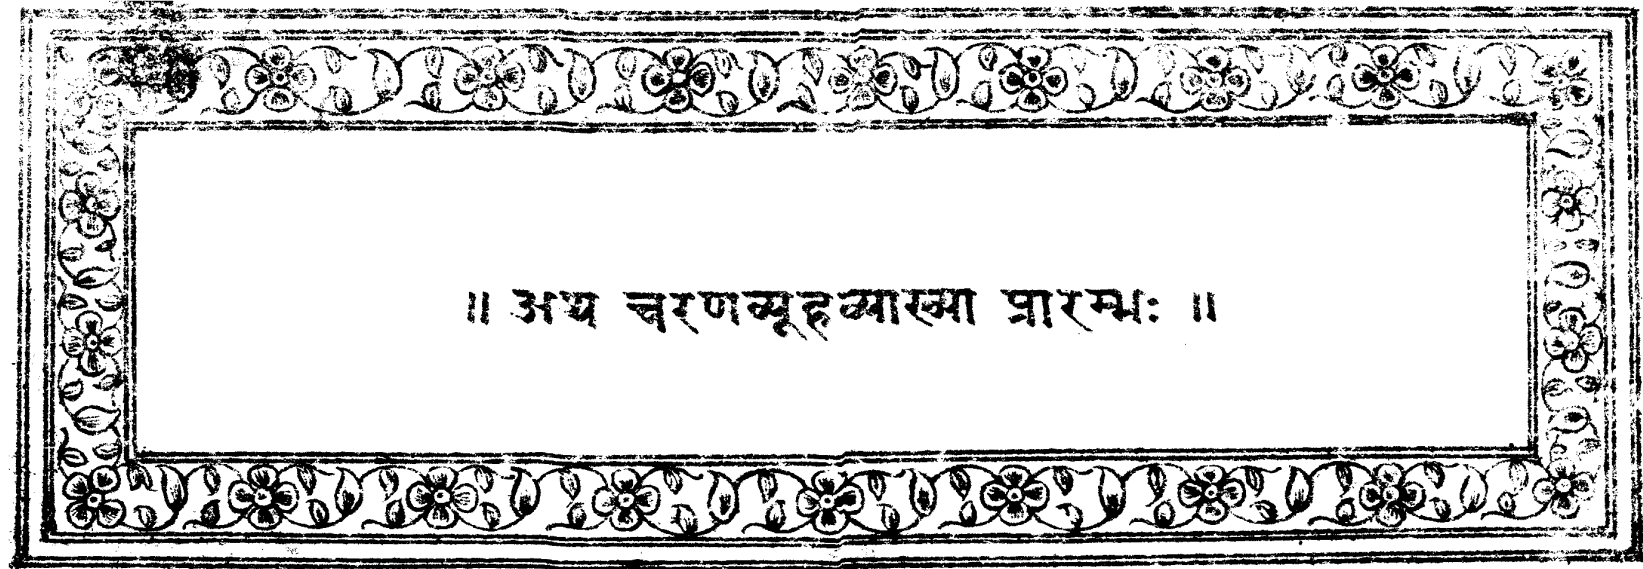 ॥ अथ चरणव्यूहव्याख्या प्रारम्भः ॥